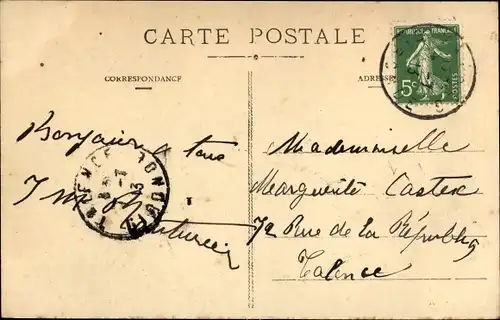 CARTE POSTALE
CORRESPONDANCE
ADRESSE
REPUBLIQUE FRANÇAISE
5c
POSTES
Bonjour à tous
TALENCE GIRONDE
Mademoiselle
Marguerite Castex
72 Rue de la République
Talence